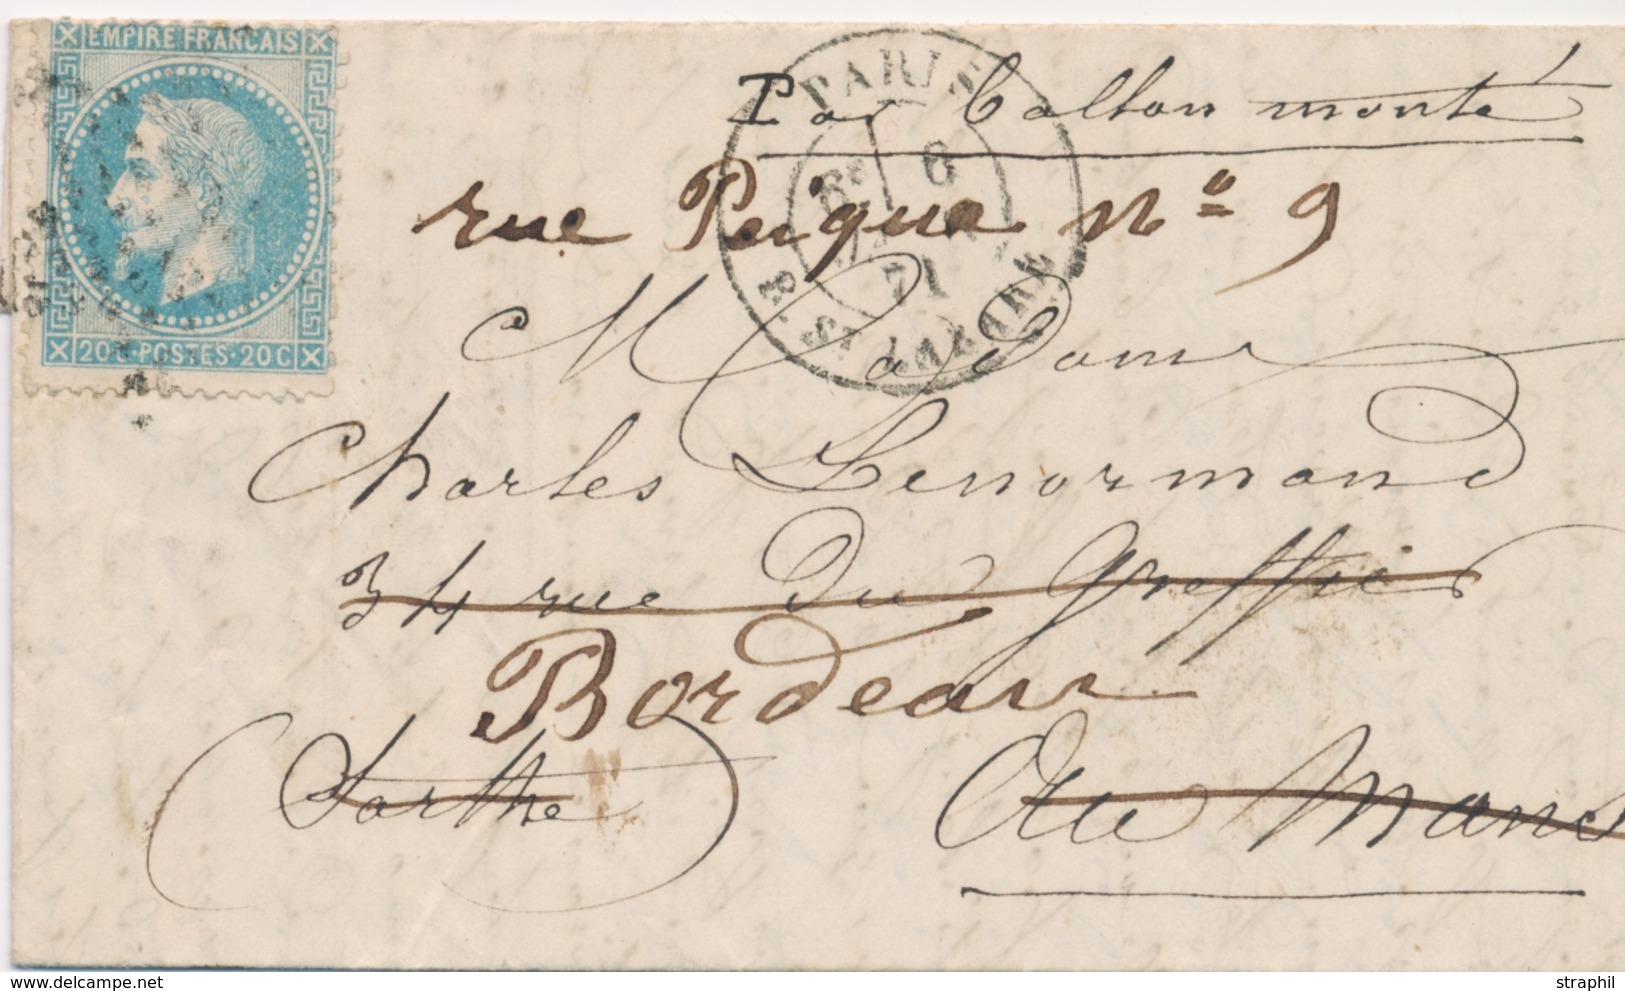 EMPIRE FRANCAIS
20 C POSTES 20 C
PARIS
6
71
R. ST LAZARE
Par ballon monté
rue Peigue nº 9
Madame
Charles Lenormand
34 rue du Greffier
Bordeaux
Sarthe
Au Mans
www.delcampe.net
straphil